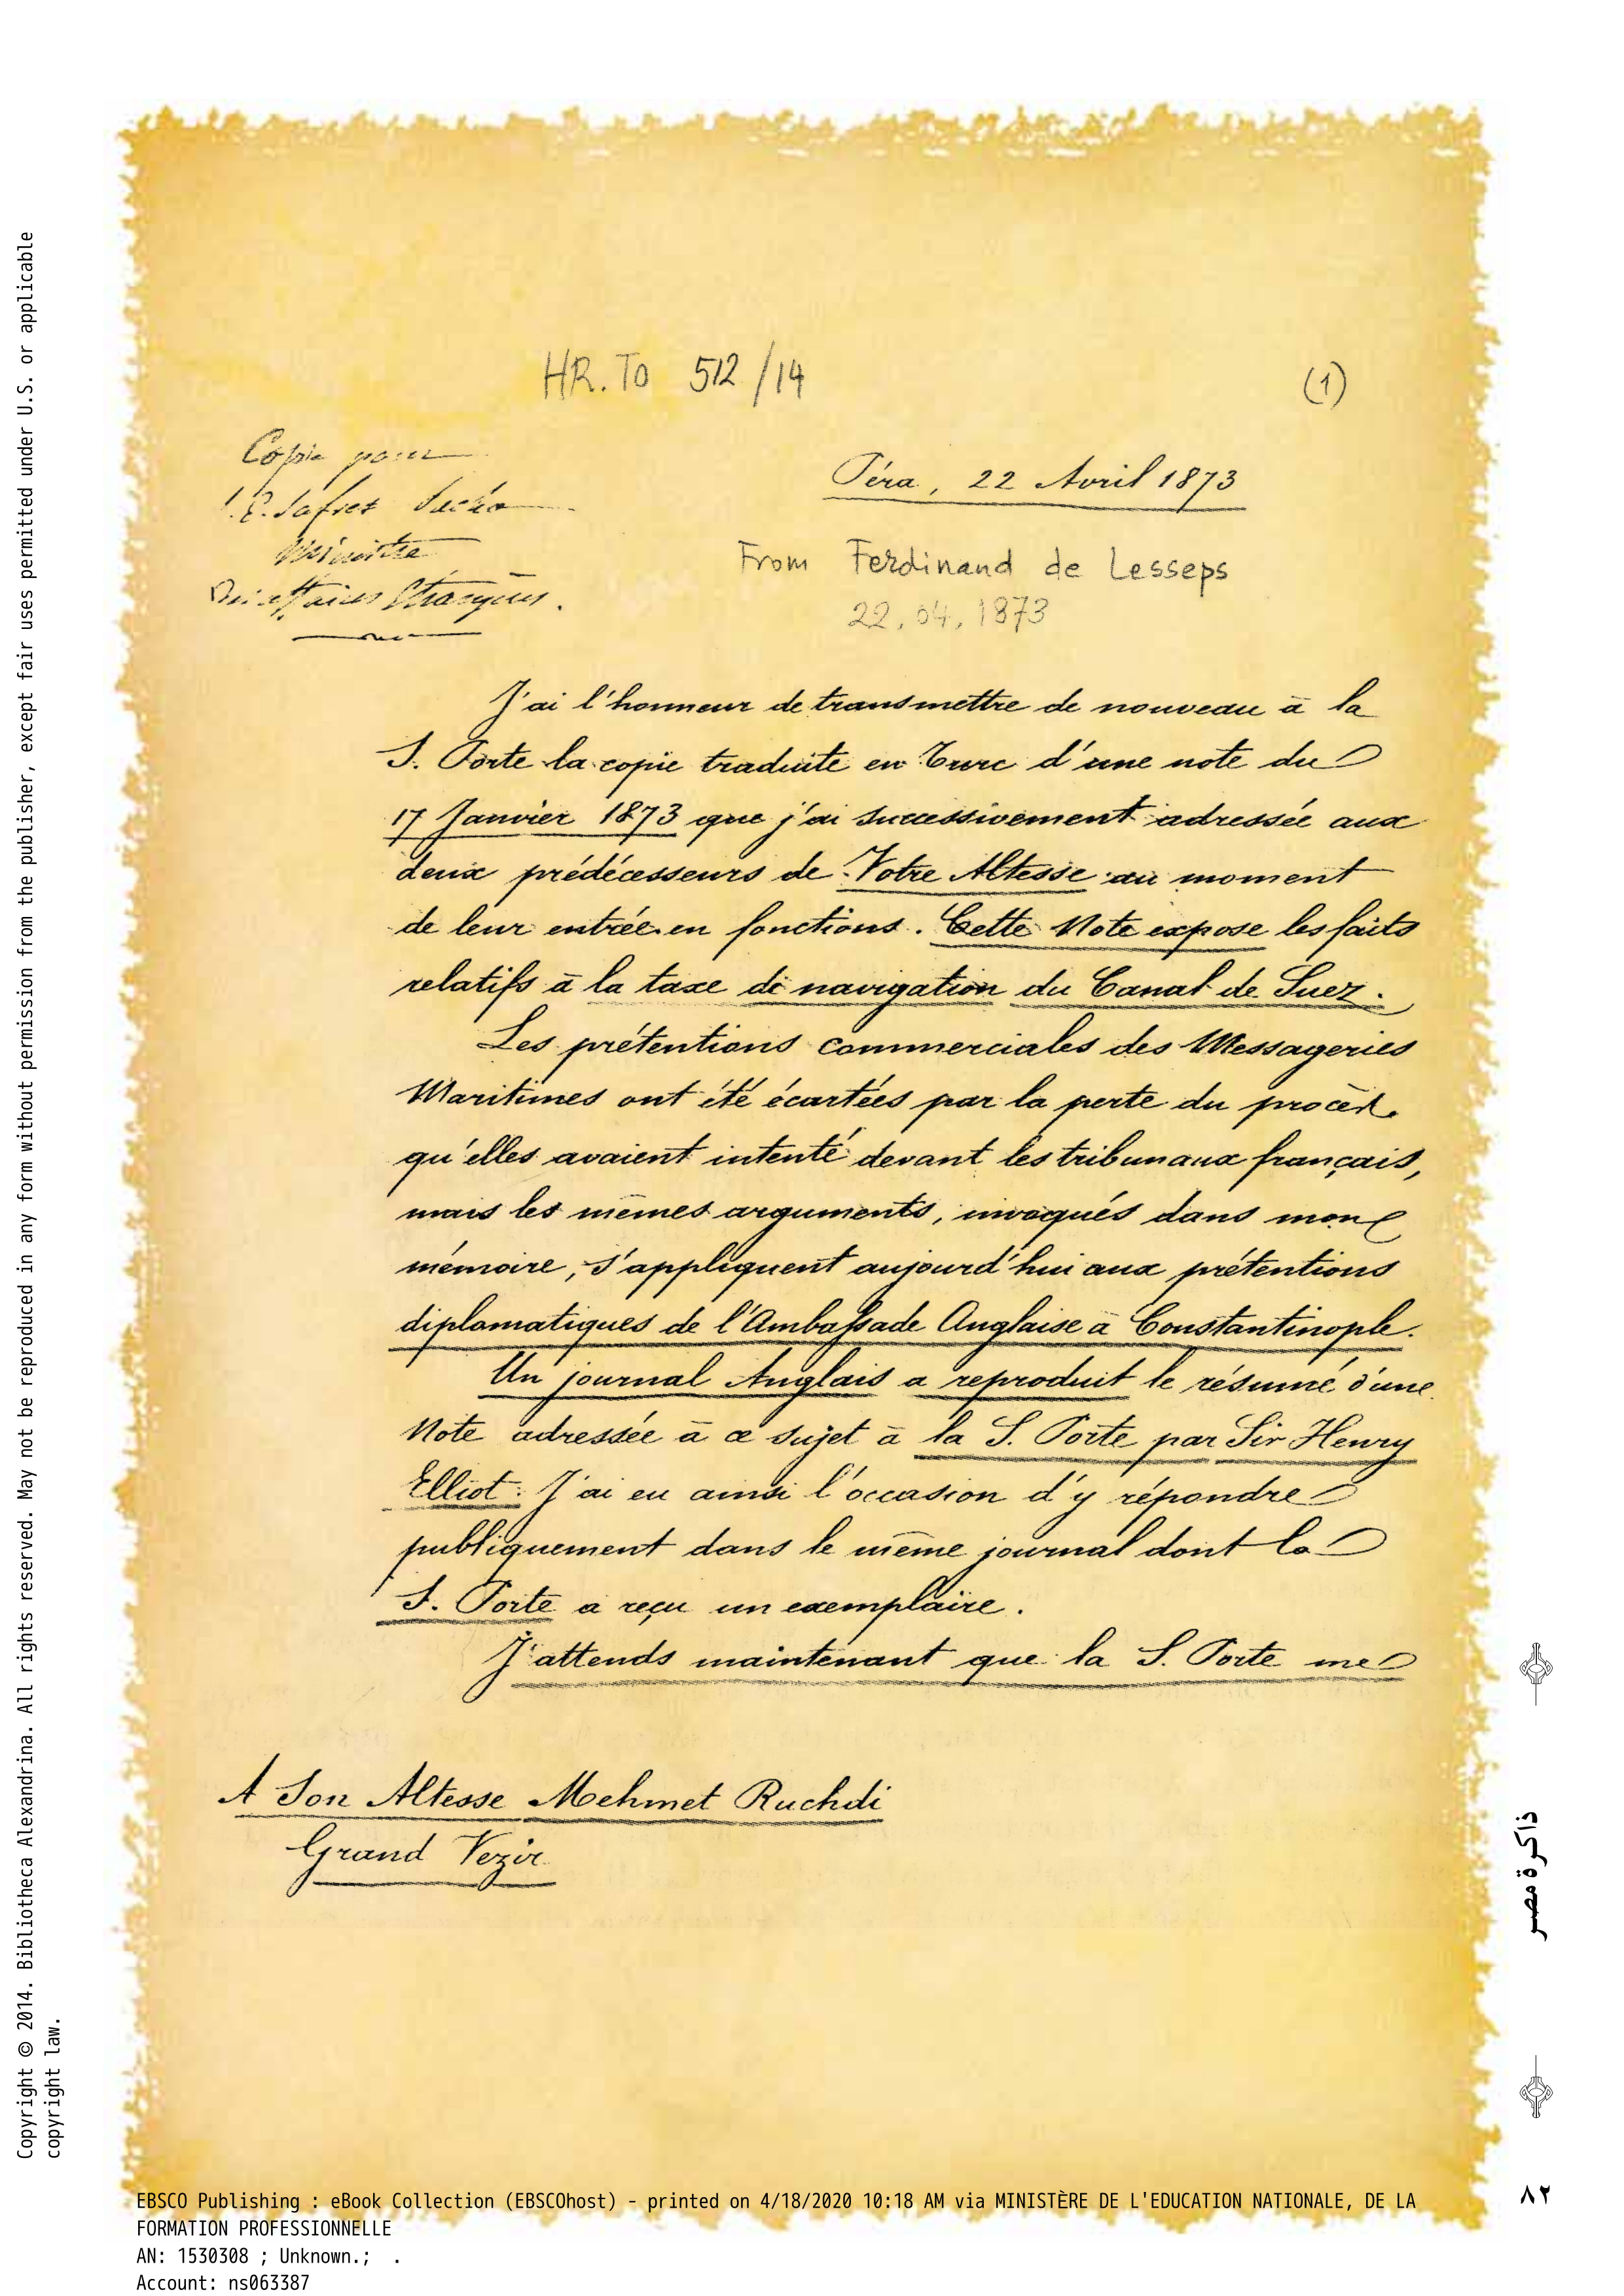 HR.To 512/14
(1)
Copie pour
S.E. Safvet Pacha
Ministre
Des affaires Etrangères.
Péra, 22 Avril 1873
From Ferdinand de Lesseps
22.04.1873
J'ai l'honneur de transmettre de nouveau à la
S. Porte la copie traduite en Turc d'une note du
17 Janvier 1873 que j'ai successivement adressée aux
deux prédécesseurs de Votre Altesse au moment
de leur entrée en fonctions. Cette Note expose les faits
relatifs à la taxe de navigation du Canal de Suez.
Les prétentions commerciales des Messageries
Maritimes ont été écartées par la perte du procès
qu'elles avaient intenté devant les tribunaux français,
mais les mêmes arguments, invoqués dans mon
mémoire, s'appliquent aujourd'hui aux prétentions
diplomatiques de l'Ambassade Anglaise à Constantinople.
Un journal Anglais a reproduit le résumé d'une
Note adressée à ce sujet à la S. Porte par Sir Henry
Elliot. J'ai eu ainsi l'occasion d'y répondre
publiquement dans le même journal dont la
S. Porte a reçu un exemplaire.
J'attends maintenant que la S. Porte me
A Son Altesse Mehmet Ruchdi
Grand Vezir
ذاكرة مصر
٨٢
Copyright © 2014. Bibliotheca Alexandrina. All rights reserved. May not be reproduced in any form without permission from the publisher, except fair uses permitted under U.S. or applicable
copyright law.
EBSCO Publishing : eBook Collection (EBSCOhost) - printed on 4/18/2020 10:18 AM via MINISTÈRE DE L'EDUCATION NATIONALE, DE LA
FORMATION PROFESSIONNELLE
AN: 1530308 ; Unknown.; .
Account: ns063387